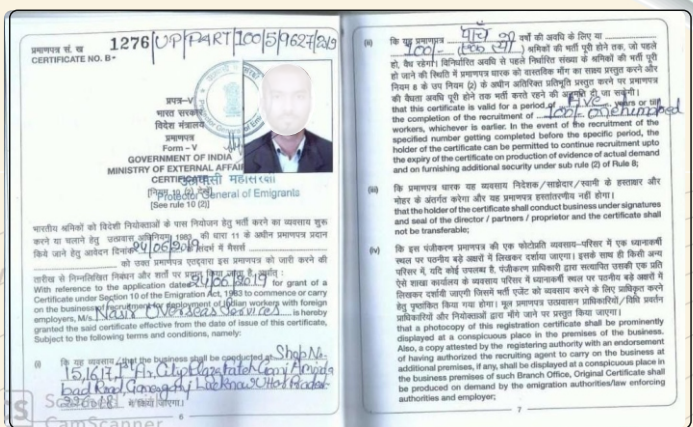 प्रमाणपत्र सं. ख
CERTIFICATE NO. B-
1276/UP/PART/100/5/9627/2019
प्रपत्र-V
भारत सरकार
विदेश मंत्रालय
प्रमाणपत्र
Form - V
GOVERNMENT OF INDIA
MINISTRY OF EXTERNAL AFFAI
CERTIFICATE
उत्प्रवासी महासंरक्षी
[नियम 10 (2) देखें]
Protector General of Emigrants
[See rule 10 (2)]
भारतीय श्रमिकों को विदेशी नियोक्ताओं के पास नियोजन हेतु भर्ती करने का व्यवसाय शुरू
करने या चलाने हेतु उत्प्रवास अधिनियम 1983 की धारा 11 के अधीन प्रमाणपत्र प्रदान
किये जाने हेतु आवेदन दिनांक 24/06/2019 संदर्भ में मैसर्स
को उक्त प्रमाणपत्र एतद्द्वारा इस प्रमाणपत्र को जारी करने की
तारीख से निम्नलिखित निबंधन और शर्तों पर प्रदान किया जाता है, अर्थात् :
With reference to the application dated 24/06/2019 for grant of a
Certificate under Section 10 of the Emigration Act, 1983 to commence or carry
on the business of recruitment for deployment of Indian workers with foreign
employers, M/s Nasir Overseas Services is hereby
granted the said certificate effective from the date of issue of this certificate,
Subject to the following terms and conditions, namely:
(i) कि यह व्यवसाय / that the business shall be conducted at Shop No.
15,16,17, Ist Flr, City Plaza
Road, Lucknow Uttar Pradesh
में किया जाएगा।
6
CamScanner
(ii) कि यह प्रमाणपत्र पाँच वर्षों की अवधि के लिए या
100/- (एक सौ) श्रमिकों की भर्ती पूरी होने तक, जो पहले
हो, वैध रहेगा। विनिर्धारित अवधि से पहले निर्धारित संख्या के श्रमिकों की भर्ती पूरी
हो जाने की स्थिति में प्रमाणपत्र धारक को वास्तविक माँग का साक्ष्य प्रस्तुत करने और
नियम 8 के उप नियम (2) के अधीन अतिरिक्त प्रतिभूति प्रस्तुत करने पर प्रमाणपत्र
की वैधता अवधि पूरी होने तक भर्ती करते रहने की अनुमति दी जा सकेगी।
that this certificate is valid for a period of Five years or till
the completion of the recruitment of 100/-
workers, whichever is earlier. In the event of the recruitment of the
specified number getting completed before the specific period, the
holder of the certificate can be permitted to continue recruitment upto
the expiry of the certificate on production of evidence of actual demand
and on furnishing additional security under sub rule (2) of Rule 8;
(iii) कि प्रमाणपत्र धारक यह व्यवसाय निदेशक/साझेदार/स्वामी के हस्ताक्षर और
मोहर के अंतर्गत करेगा और यह प्रमाणपत्र हस्तांतरणीय नहीं होगा।
that the holder of the certificate shall conduct business under signatures
and seal of the director / partners / proprietor and the certificate shall
not be transferable;
(iv) कि इस पंजीकरण प्रमाणपत्र की एक फोटोप्रति व्यवसाय-परिसर में एक ध्यानाकर्षी
स्थल पर पठनीय बड़े अक्षरों में लिखकर दर्शाया जाएगा। इसके साथ ही किसी अन्य
परिसर में, यदि कोई उपलब्ध है, पंजीकरण प्राधिकारी द्वारा सत्यापित उसकी एक प्रति
ऐसे शाखा कार्यालय के व्यवसाय परिसर में ध्यानाकर्षी स्थल पर पठनीय बड़े अक्षरों में
लिखकर दर्शायी जाएगी जिसमें भर्ती एजेंट को व्यवसाय करने के लिए प्राधिकृत करने
हेतु पृष्ठांकित किया गया होगा। मूल प्रमाणपत्र उत्प्रवासन प्राधिकारियों/विधि प्रवर्तन
प्राधिकारियों और नियोक्ताओं द्वारा माँगे जाने पर प्रस्तुत किया जाएगा।
that a photocopy of this registration certificate shall be prominently
displayed at a conspicuous place in the premises of the business.
Also, a copy attested by the registering authority with an endorsement
of having authorized the recruiting agent to carry on the business at
additional premises, if any, shall be displayed at a conspicuous place in
the business premises of such Branch Office, Original Certificate shall
be produced on demand by the emigration authorities/law enforcing
authorities and employer;
7